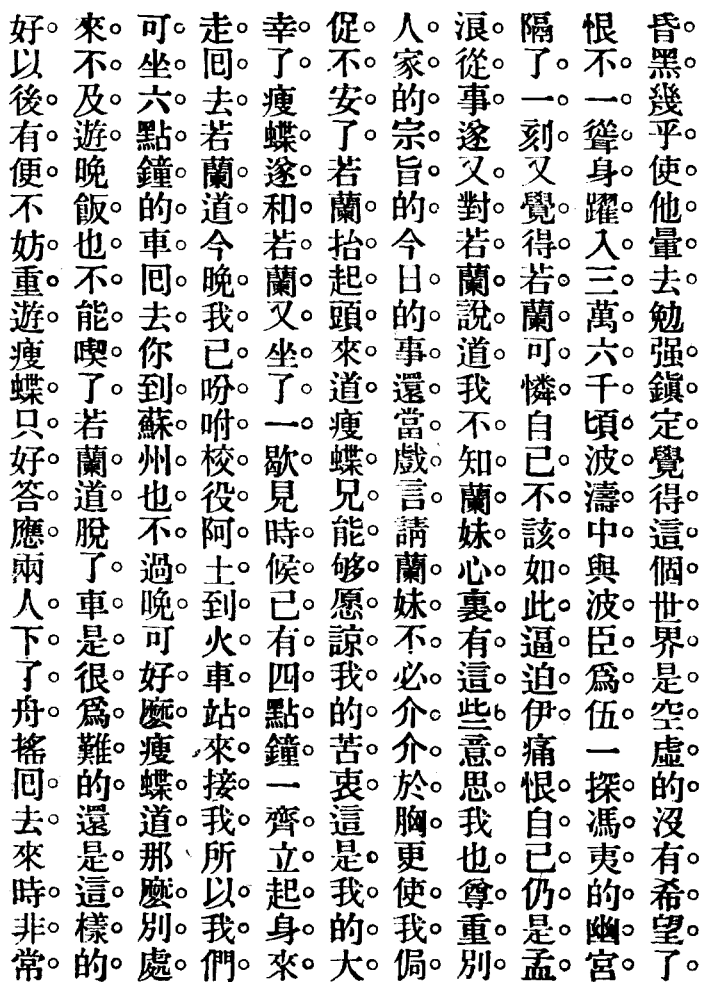 昏黑幾乎使他暈去勉强鎮定覺得這個世界是空虛的沒有希望了
恨不一聳身躍入三萬六千頃波濤中與波臣爲伍一探馮夷的幽宮
隔了一刻又覺得若蘭可憐自己不該如此逼迫伊痛恨自己仍是孟
浪從事遂又對若蘭說道我不知蘭妹心裏有這些意思我也尊重別
人家的宗旨的今日的事還當戲言請蘭妹不必介介於胸更使我侷
促不安了若蘭抬起頭來道瘦蝶兄能够愿諒我的苦衷這是我的大
幸了瘦蝶遂和若蘭又坐了一歇見時候已有四點鐘一齊立起身來
走囘去若蘭道今晚我已吩咐校役阿土到火車站來接我所以我們
可坐六點鐘的車囘去你到蘇州也不過晚可好麽瘦蝶道那麽別處
來不及遊晚飯也不能喫了若蘭道脫了車是很爲難的還是這樣的
好以後有便不妨重遊瘦蝶只好答應兩人下了舟搖囘去來時非常